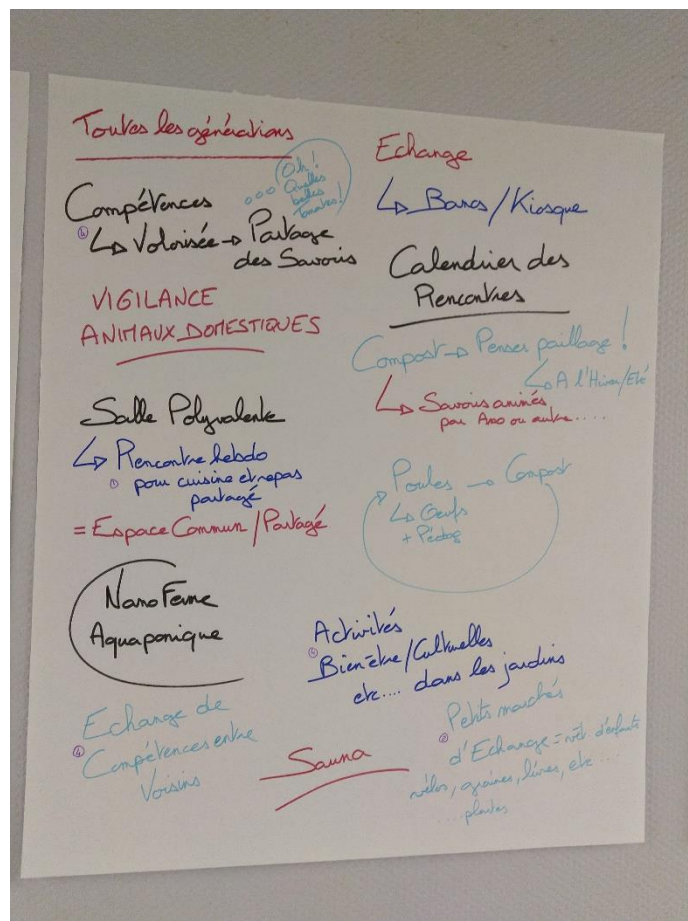 Toutes les générations
Oh!
Quelles
belles
Tomates!
Compétences
④ ↳ Valorisée → Partage
des Savoirs
VIGILANCE
ANIMAUX DOMESTIQUES
Salle Polyvalente
↳ Rencontre hebdo
① pour cuisine et repas
partagé
= Espace Commun / Partagé
Nano Ferme
Aquaponique
Echange de
④ Compétences entre
Voisins
Echange
↳ Bancs / Kiosque
Calendrier des
Rencontres
Compost → Penser paillage!
↳ A l'Hiver/Eté
↳ Savoirs animés
par Asso ou autre....
Poules → Compost
↳ Oeufs
+ Pédag
Activités
Bien-être / Culturelles
etc.... dans les jardins
Petits marchés
② d'Echange = vêt d'enfants
vélos, graines, livres, etc....
....plantes
Sauna